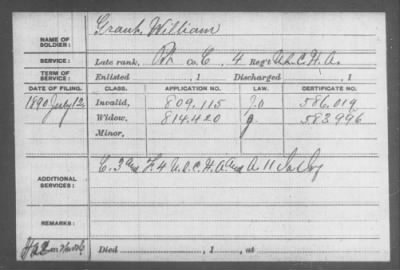 NAME OF SOLDIER: Grant, William
SERVICE: Late rank, Co. C, 4 Reg't U.S.C.H.A.
TERM OF SERVICE: Enlisted , 1 Discharged , 1
DATE OF FILING. CLASS. APPLICATION NO. LAW. CERTIFICATE NO.
1890 July 12 Invalid, 809.115 586.019
Widow, 814.420 583.996
Minor,
ADDITIONAL SERVICES: C. 3 and F. 4 U.S.C.H.A. and A. 11
REMARKS:
Died , 1 , at